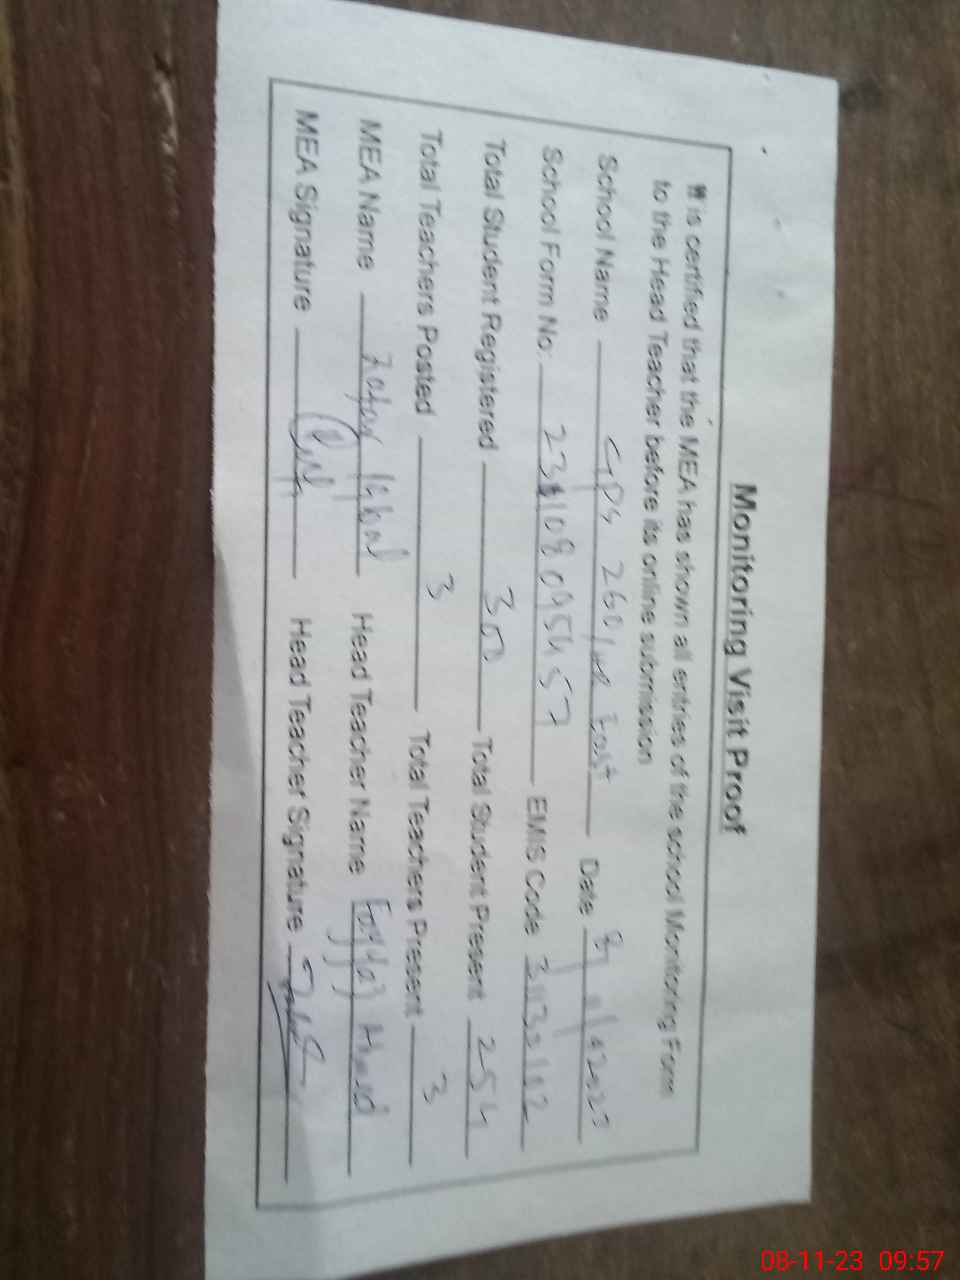 Monitoring Visit Proof
It is certified that the MEA has shown all entries of the school Monitoring Form
to the Head Teacher before its online submission
School Name GPS 260 East Date 8
School Form No: EMIS Code
Total Student Registered 300 Total Student Present 254
Total Teachers Posted 3 Total Teachers Present 3
MEA Name Zafar Iqbal Head Teacher Name Fayyaz Ahmad
MEA Signature Head Teacher Signature
08-11-23 09:57